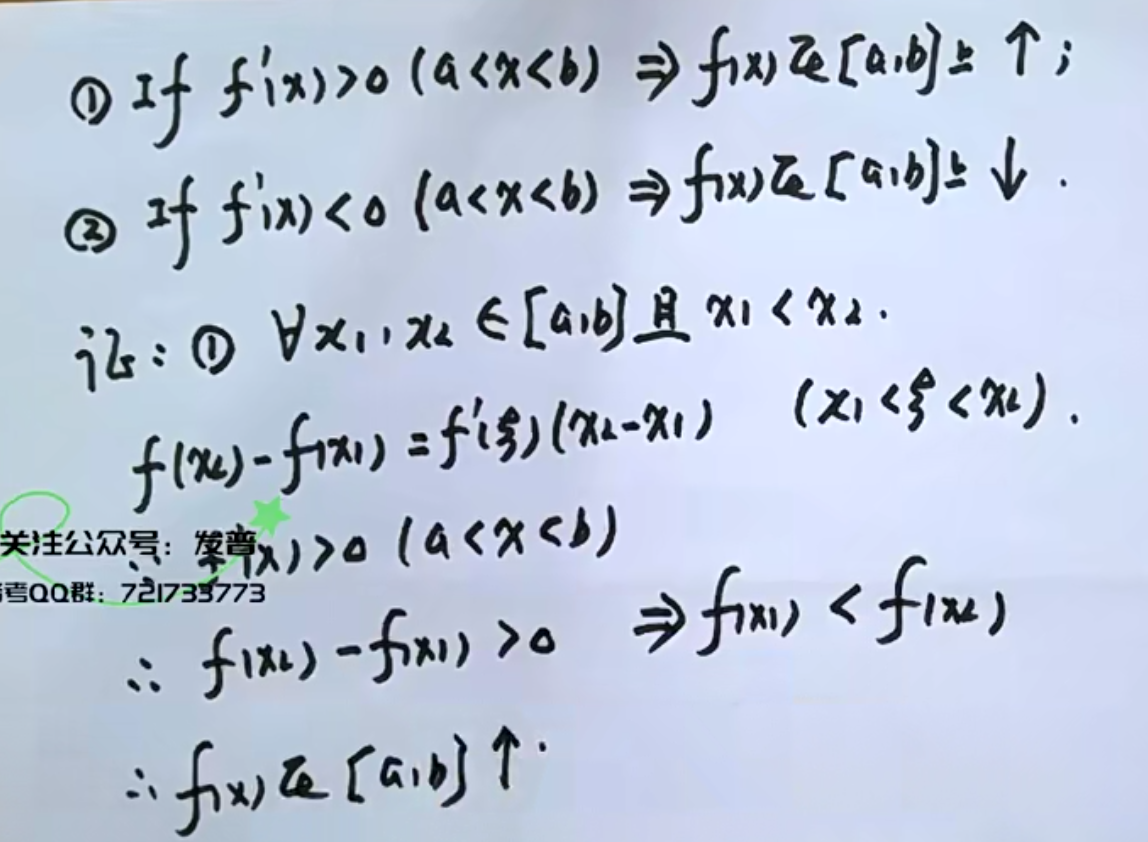 ① If f'(x)>0 (a<x<b) ⇒ f(x)在[a,b]上 ↑;
② If f'(x)<0 (a<x<b) ⇒ f(x)在[a,b]上 ↓.
证: ① ∀x₁,x₂ ∈ [a,b] 且 x₁ < x₂.
f(x₂)-f(x₁) = f'(ξ)(x₂-x₁) (x₁<ξ<x₂).
关注公众号：发普
(x)>0 (a<x<b)
考QQ群：721733773
∴ f(x₂)-f(x₁)>0 ⇒ f(x₁) < f(x₂)
∴ f(x)在[a,b] ↑.